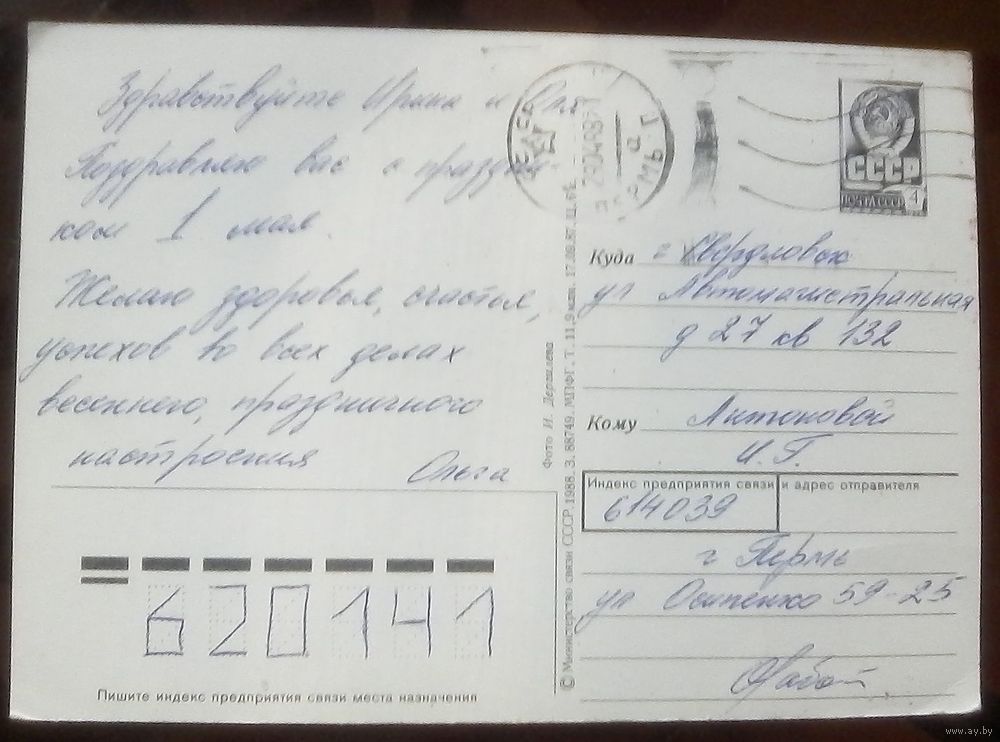 Здравствуйте Ирина и Оля
Поздравляю вас с праздни-
ком 1 мая.
Желаю здоровья, счастья,
успехов во всех делах
весеннего, праздничного
настроения
Ольга
620141
Пишите индекс предприятия связи места назначения
Фото И. Дергилева
© Министерство связи СССР. 1988. З. 88749. МПФГ. Т. 11,9 млн. 17.09.87. Ц. 6 к.
СССР
ПОЧТА СССР
4
Куда г. Свердловск
ул Автомагистральная
д 27 кв 132
Кому Антоновой
И. Г.
Индекс предприятия связи и адрес отправителя
614039
г Пермь
ул Осипенко 59-25
www.ay.by